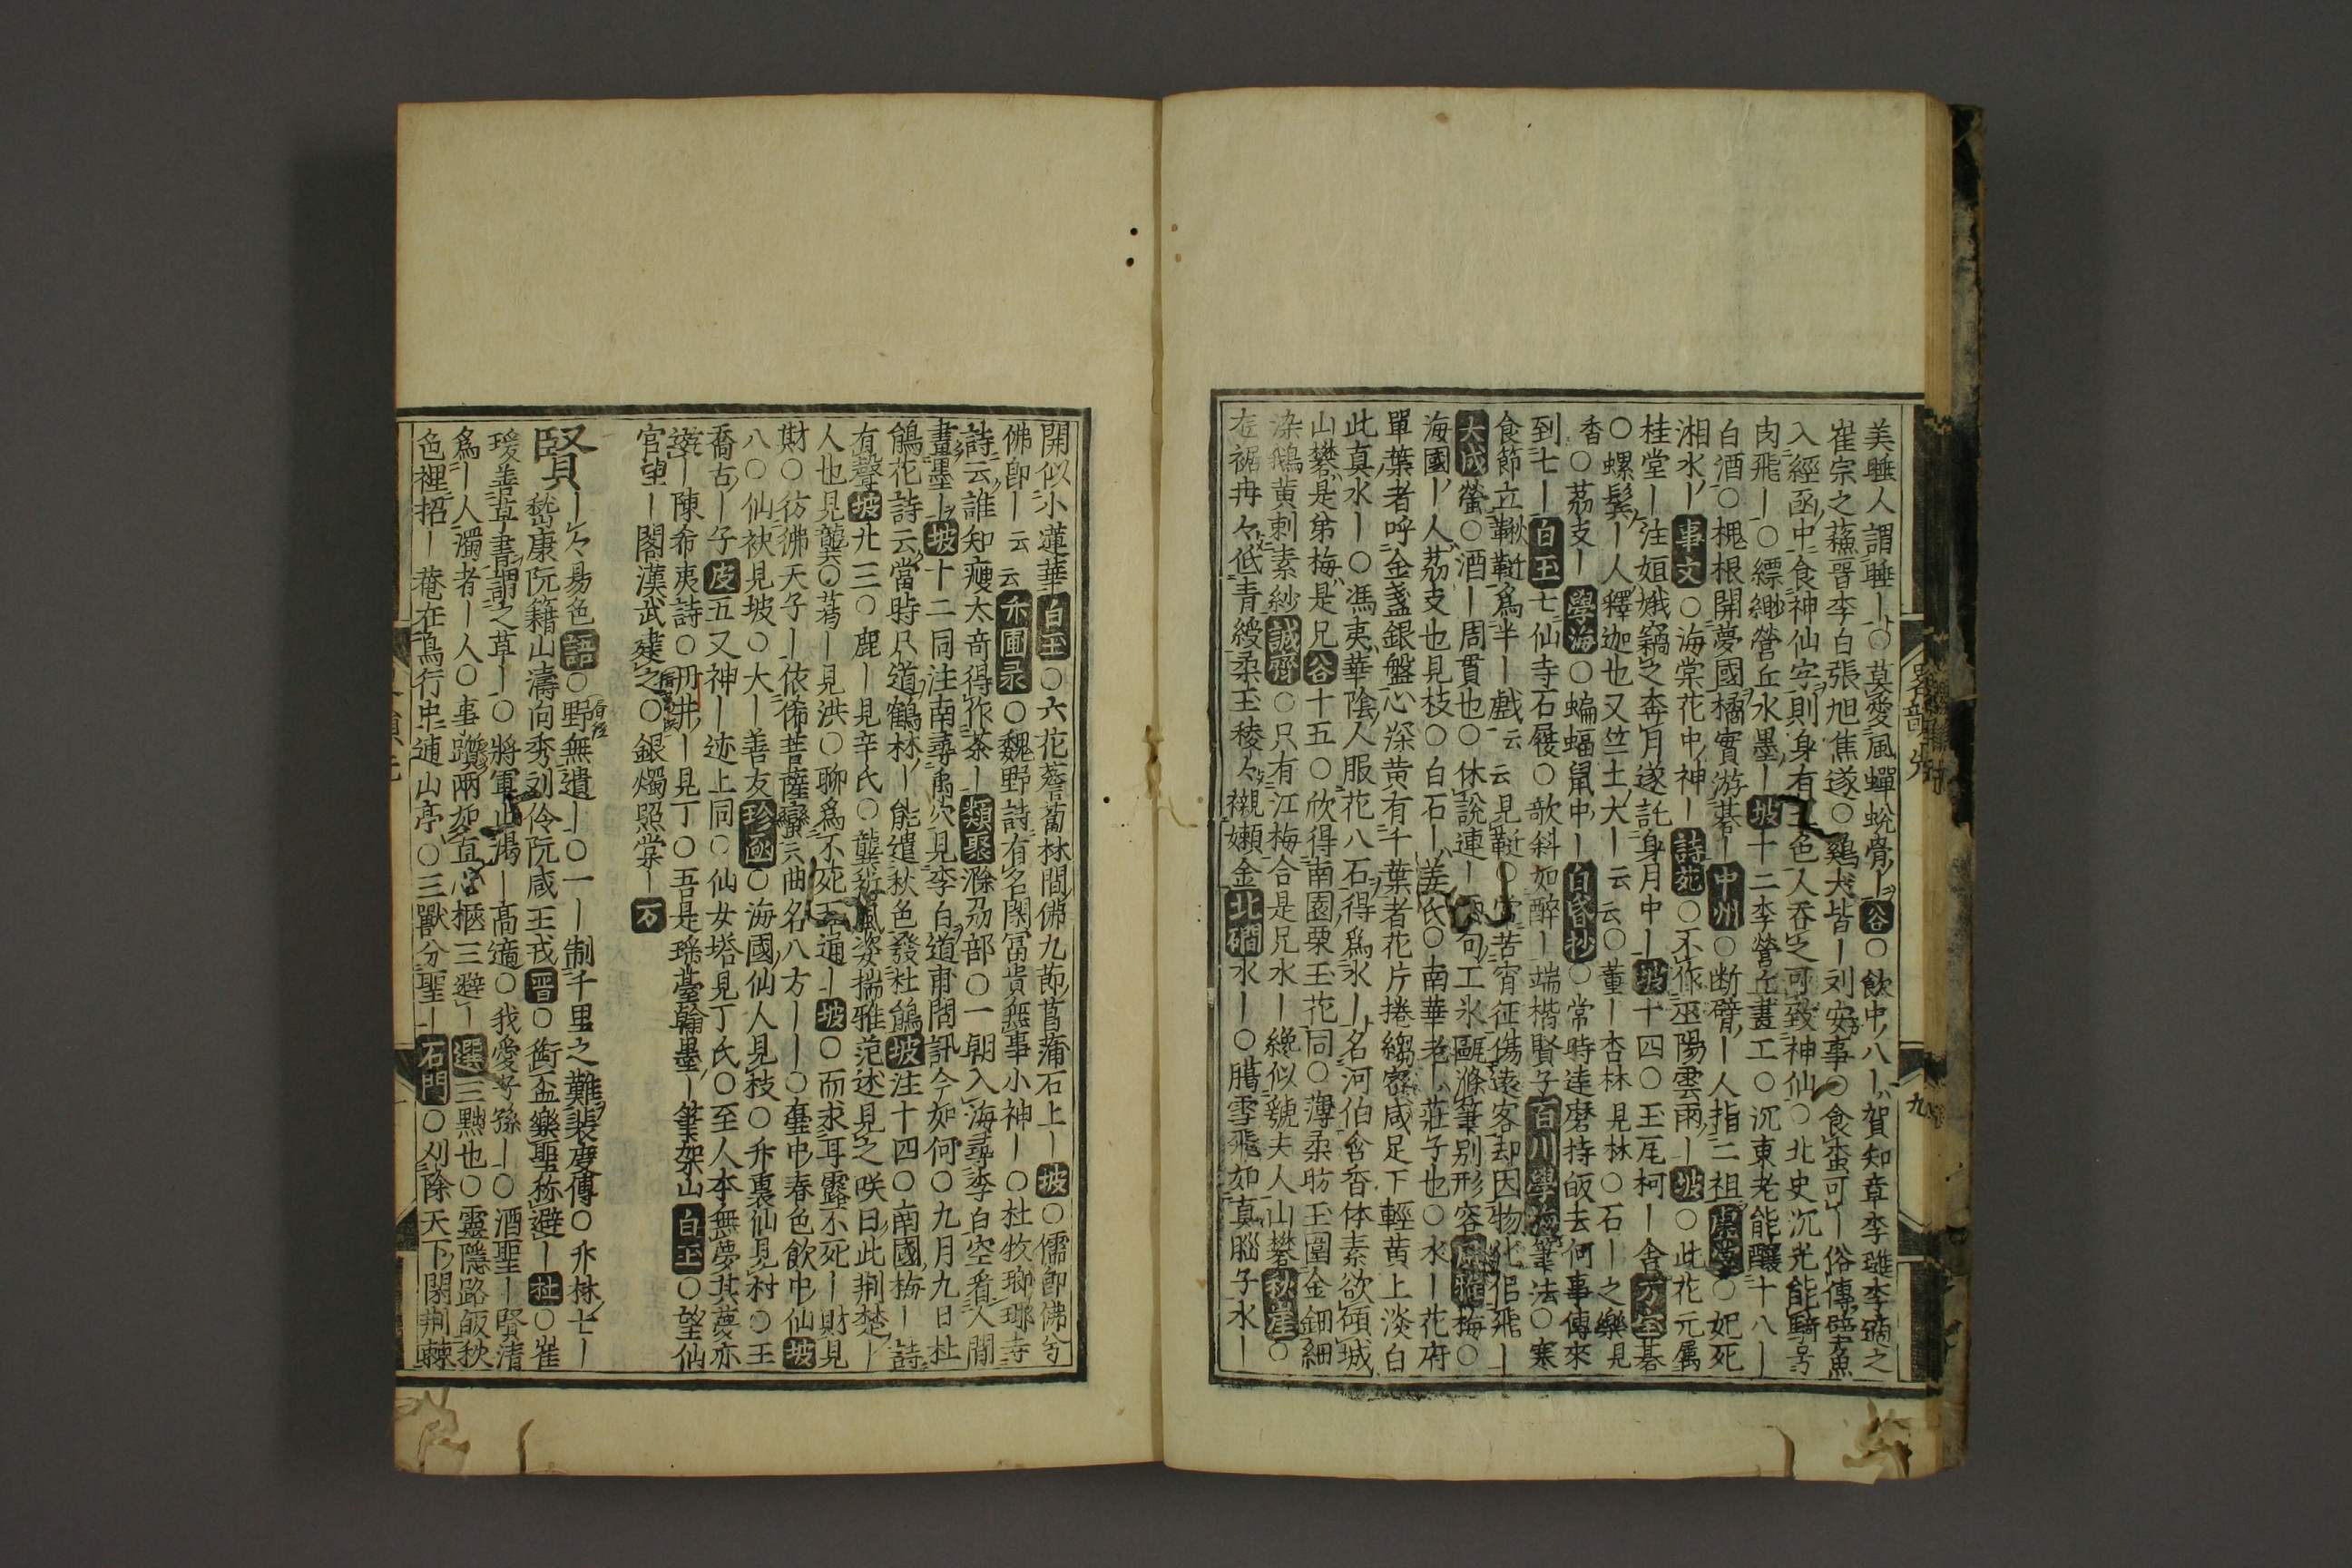 美睡人謂睡丨○莫愛風蟬蛻骨丨谷○飲中八丨賀知章李璡李適之
崔宗之蘇晋李白張旭焦遂○鷄犬皆丨刘安事○食蛮可丨俗傳壁魚
入經函中食神仙字則身有五色人吞之可致神仙○北史沉光能騎号
肉飛丨○縹緲營丘水墨丨坡十二李營丘畫工○沉東老能釀十八丨
白酒○槐根開夢國橘實游碁丨中州○断臂丨人指二祖虚堂○妃死
湘水丨事文○海棠花中神丨詩苑○不作巫陽雲雨丨坡○此花元属
桂堂丨注姮娥竊之奔月遂託身月中丨坡十四○玉座柯丨舎方室碁
○螺髻丨人釋迦也又竺土大丨云云○董丨杏林見林○石丨之樂見
香○荔支丨學海○蝙蝠鼠中丨白氏抄○常時達磨持皈去何事傳來
到七丨白玉七仙寺石屐○欹斜如醉丨端楷賢子百川學海筆法○寒
食節立鞦韆為半丨戲云云見韆○常苦宵征傷遠客却因物化侶飛丨
大成螢○酒丨周賁也○休説連丨句工氷甌滌筆別形容風雅梅○
海國丨人荔支也見枝○白石丨姜氏○南華老丨莊子也○水丨花府
單葉者呼金盞銀盤心深黄有千葉者花片捲縐密咸足下輕黄上淡白
此真水丨○馮夷華陰人服花八石得為水丨名河伯含香体素欲傾城
山礬是弟梅是兄谷十五○欣得南園粟玉花同○薄柔肪玉圍金鈿細
染鵝黄刺素紗誠齋○只有江梅合是兄水丨纔似號夫人山礬秋崖○
在裾冉々低青綬柔玉稜々襯嫩金北磵水丨○臈雪飛如真腦子水丨
開似小蓮華白玉○六花薝蔔林間佛九節菖蒲石上丨坡○儒即佛兮
佛即丨云云禾圃录○魏野詩有名閑冨貴無事小神丨○杜牧瑯琊寺
詩云誰知瘦太奇得作茶丨類聚滁刕部○一朝入海尋李白空看人間
畫墨丨坡十二同注南尋禹穴見李白道甫問訊今如何○九月九日杜
鵑花詩云當時只道鶴林丨能遣秋色發杜鵑坡注十四○南國梅丨詩
有聲坡廾三○鹿丨見辛氏○龔塔風姿揣雅范述見之咲曰此荆楚丨
人也見龔○葛丨見洪○聊為不死五通丨坡○而求耳露不死丨財見
財○彷彿天子丨依俙菩薩蠻云曲名八方丨丨○臺中春色飲中仙坡
八○仙袂見坡○大丨善友珍函○海國仙人見枝○升裏仙見村○王
喬古丨子皮五又神丨迹上同○仙女塔見丁氏○至人本無夢其夢亦
遊丨陳希夷詩○冊沸丨見丁○吾是瑶臺翰墨丨筆架山白玉○望仙
官望丨閣漢武建之○銀燭照棠丨万
賢丨々易色語○野無遺丨○一丨制千里之難裴度傳○升林七丨
嵇康阮籍山濤向秀刘伶阮咸王戎晋○銜盃樂聖称避丨杜○崔
瑗善草書謂之草丨○將軍止渇丨高適○我愛子孫丨○酒聖丨賢清
為丨人濁者丨人○事躓兩如直心樞三避丨選三黙也○靈隱路皈秋
色裡招丨菴在鳥行中逋山亭○三獸分聖丨石門○刈除天下閑荆棘